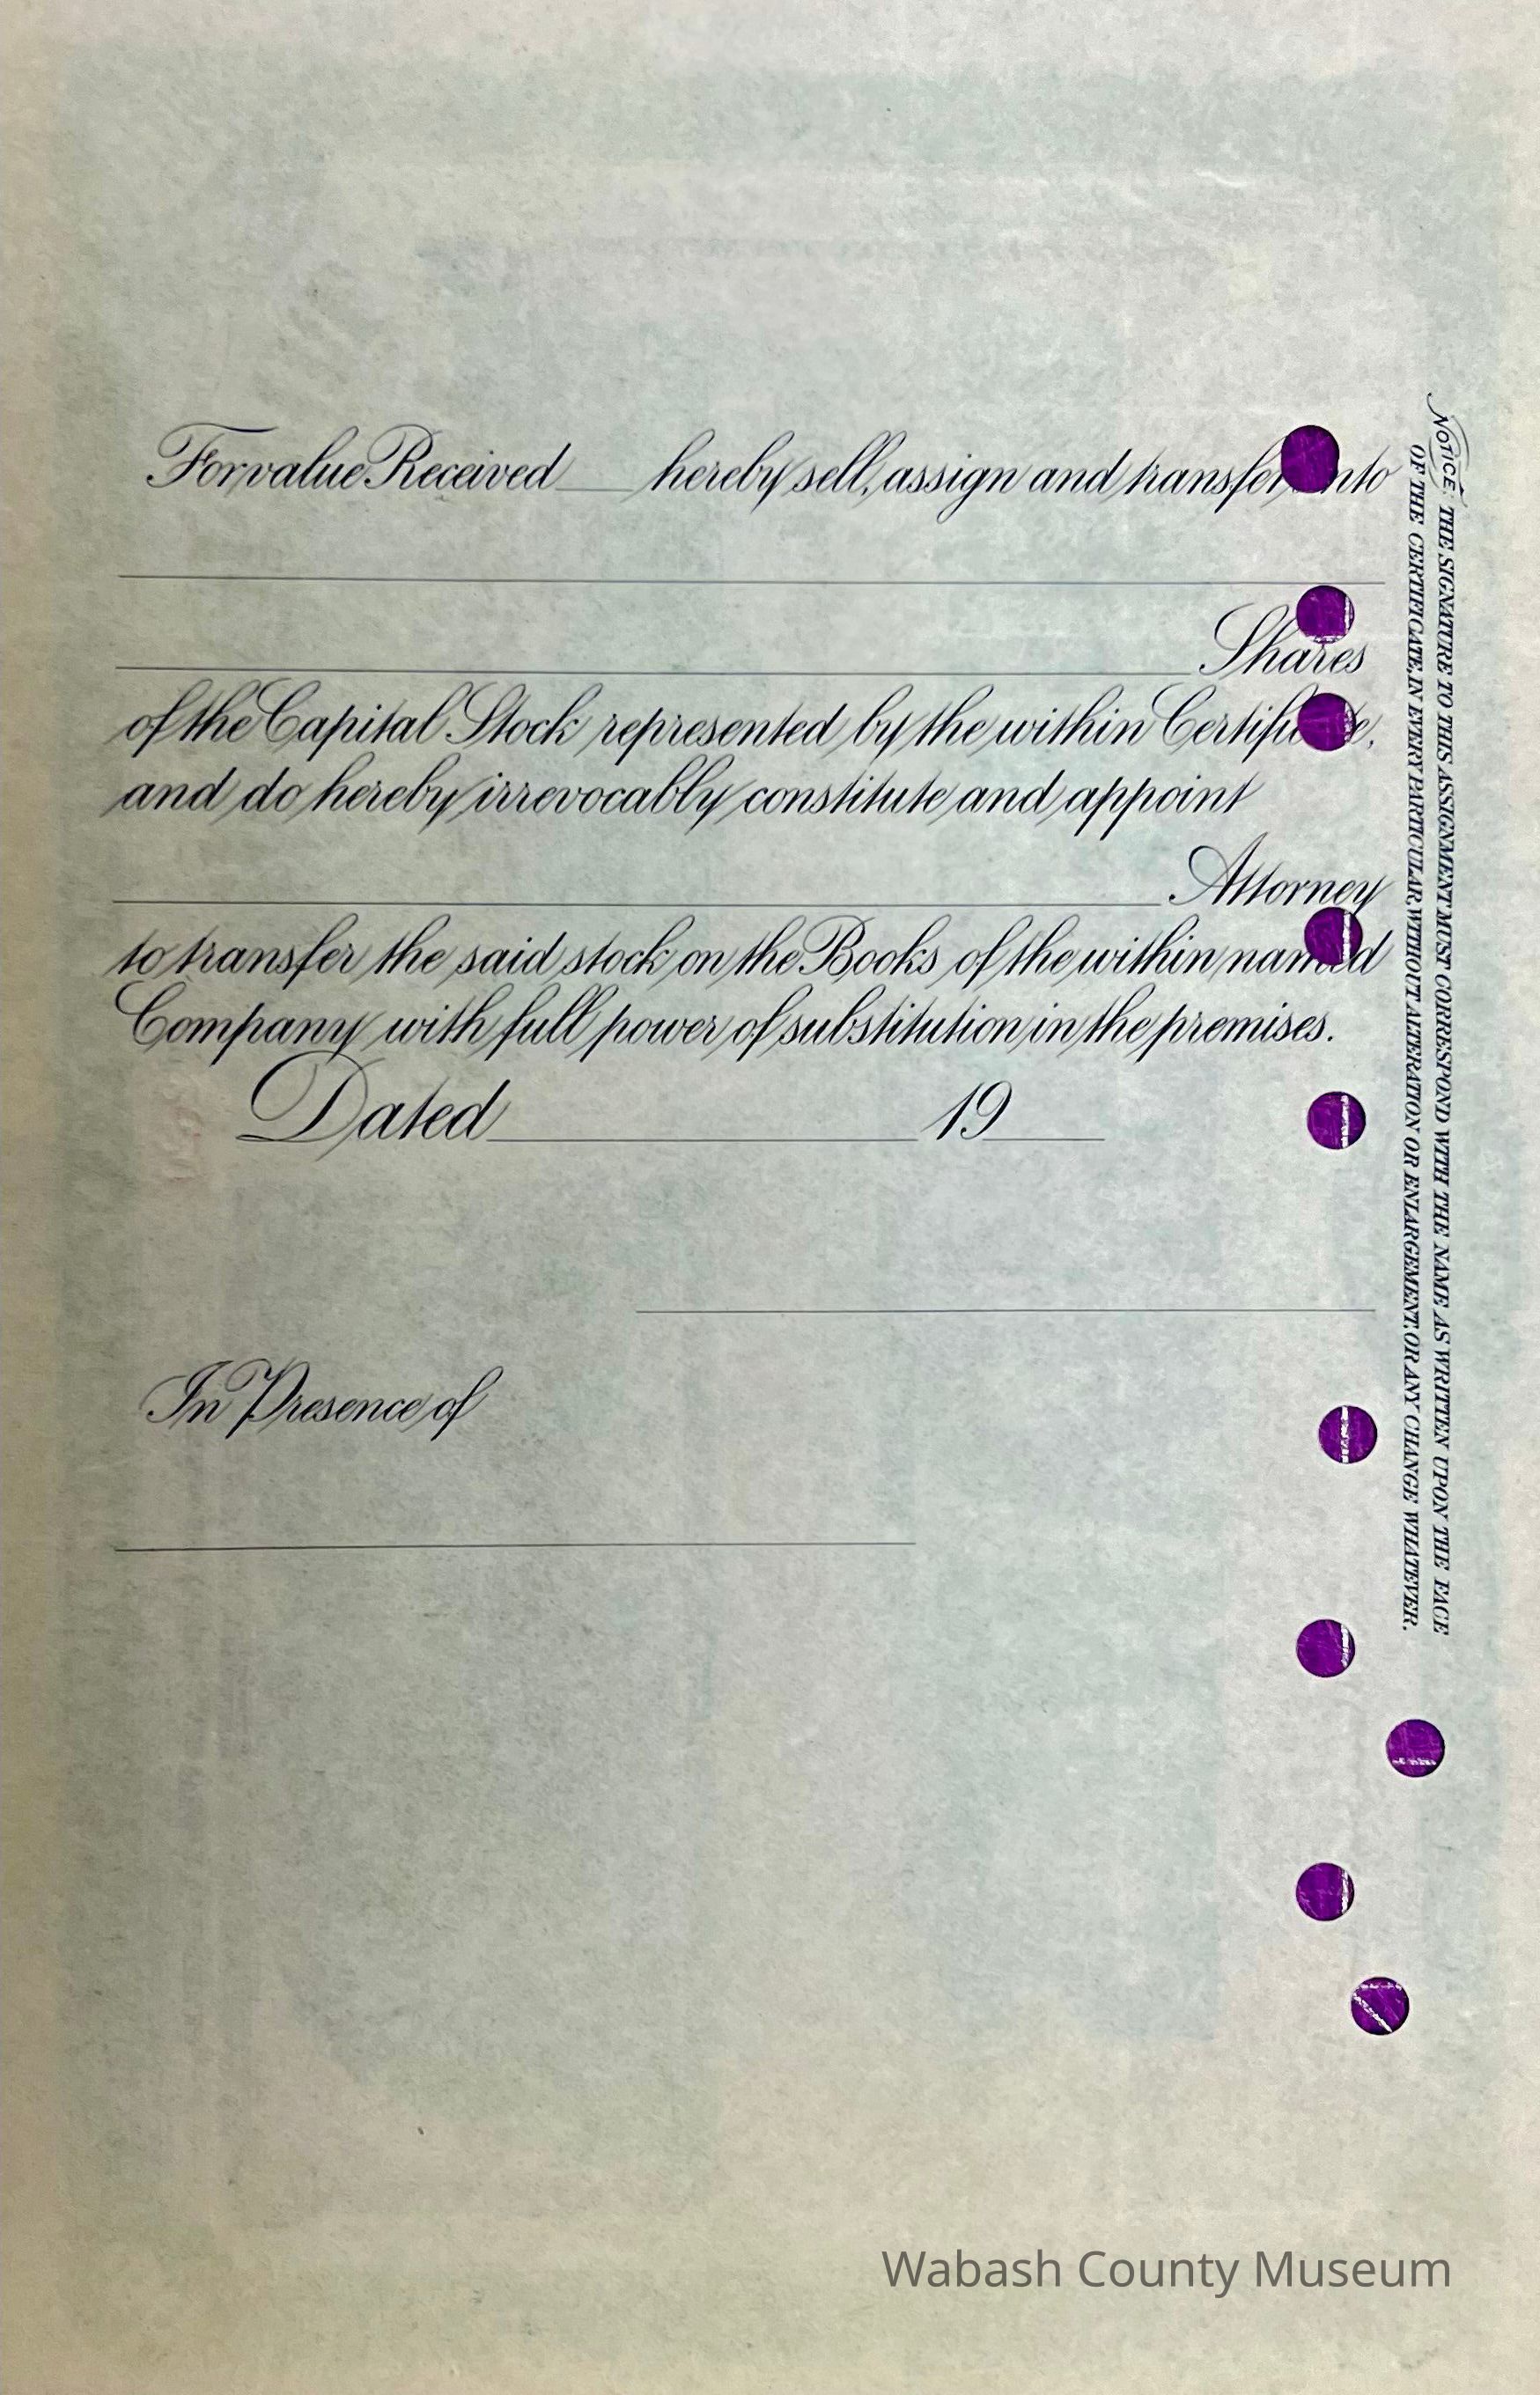 For value Received ____ hereby sell, assign and transfer unto
____ Shares
of the Capital Stock represented by the within Certificate,
and do hereby irrevocably constitute and appoint
____ Attorney
to transfer the said stock on the Books of the within named
Company with full power of substitution in the premises.
Dated ____ 19__
In Presence of
NOTICE: THE SIGNATURE TO THIS ASSIGNMENT MUST CORRESPOND WITH THE NAME AS WRITTEN UPON THE FACE
OF THE CERTIFICATE, IN EVERY PARTICULAR, WITHOUT ALTERATION OR ENLARGEMENT, OR ANY CHANGE WHATEVER.
Wabash County Museum